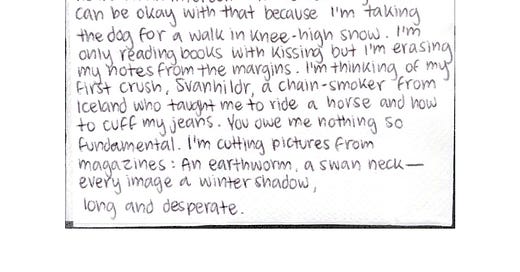 can be okay with that because I'm taking
the dog for a walk in knee-high snow. I'm
only reading books with kissing but I'm erasing
my notes from the margins. I'm thinking of my
first crush, Svanhildr, a chain-smoker from
Iceland who taught me to ride a horse and how
to cuff my jeans. You owe me nothing so
fundamental. I'm cutting pictures from
magazines: An earthworm, a swan neck—
every image a winter shadow,
long and desperate.